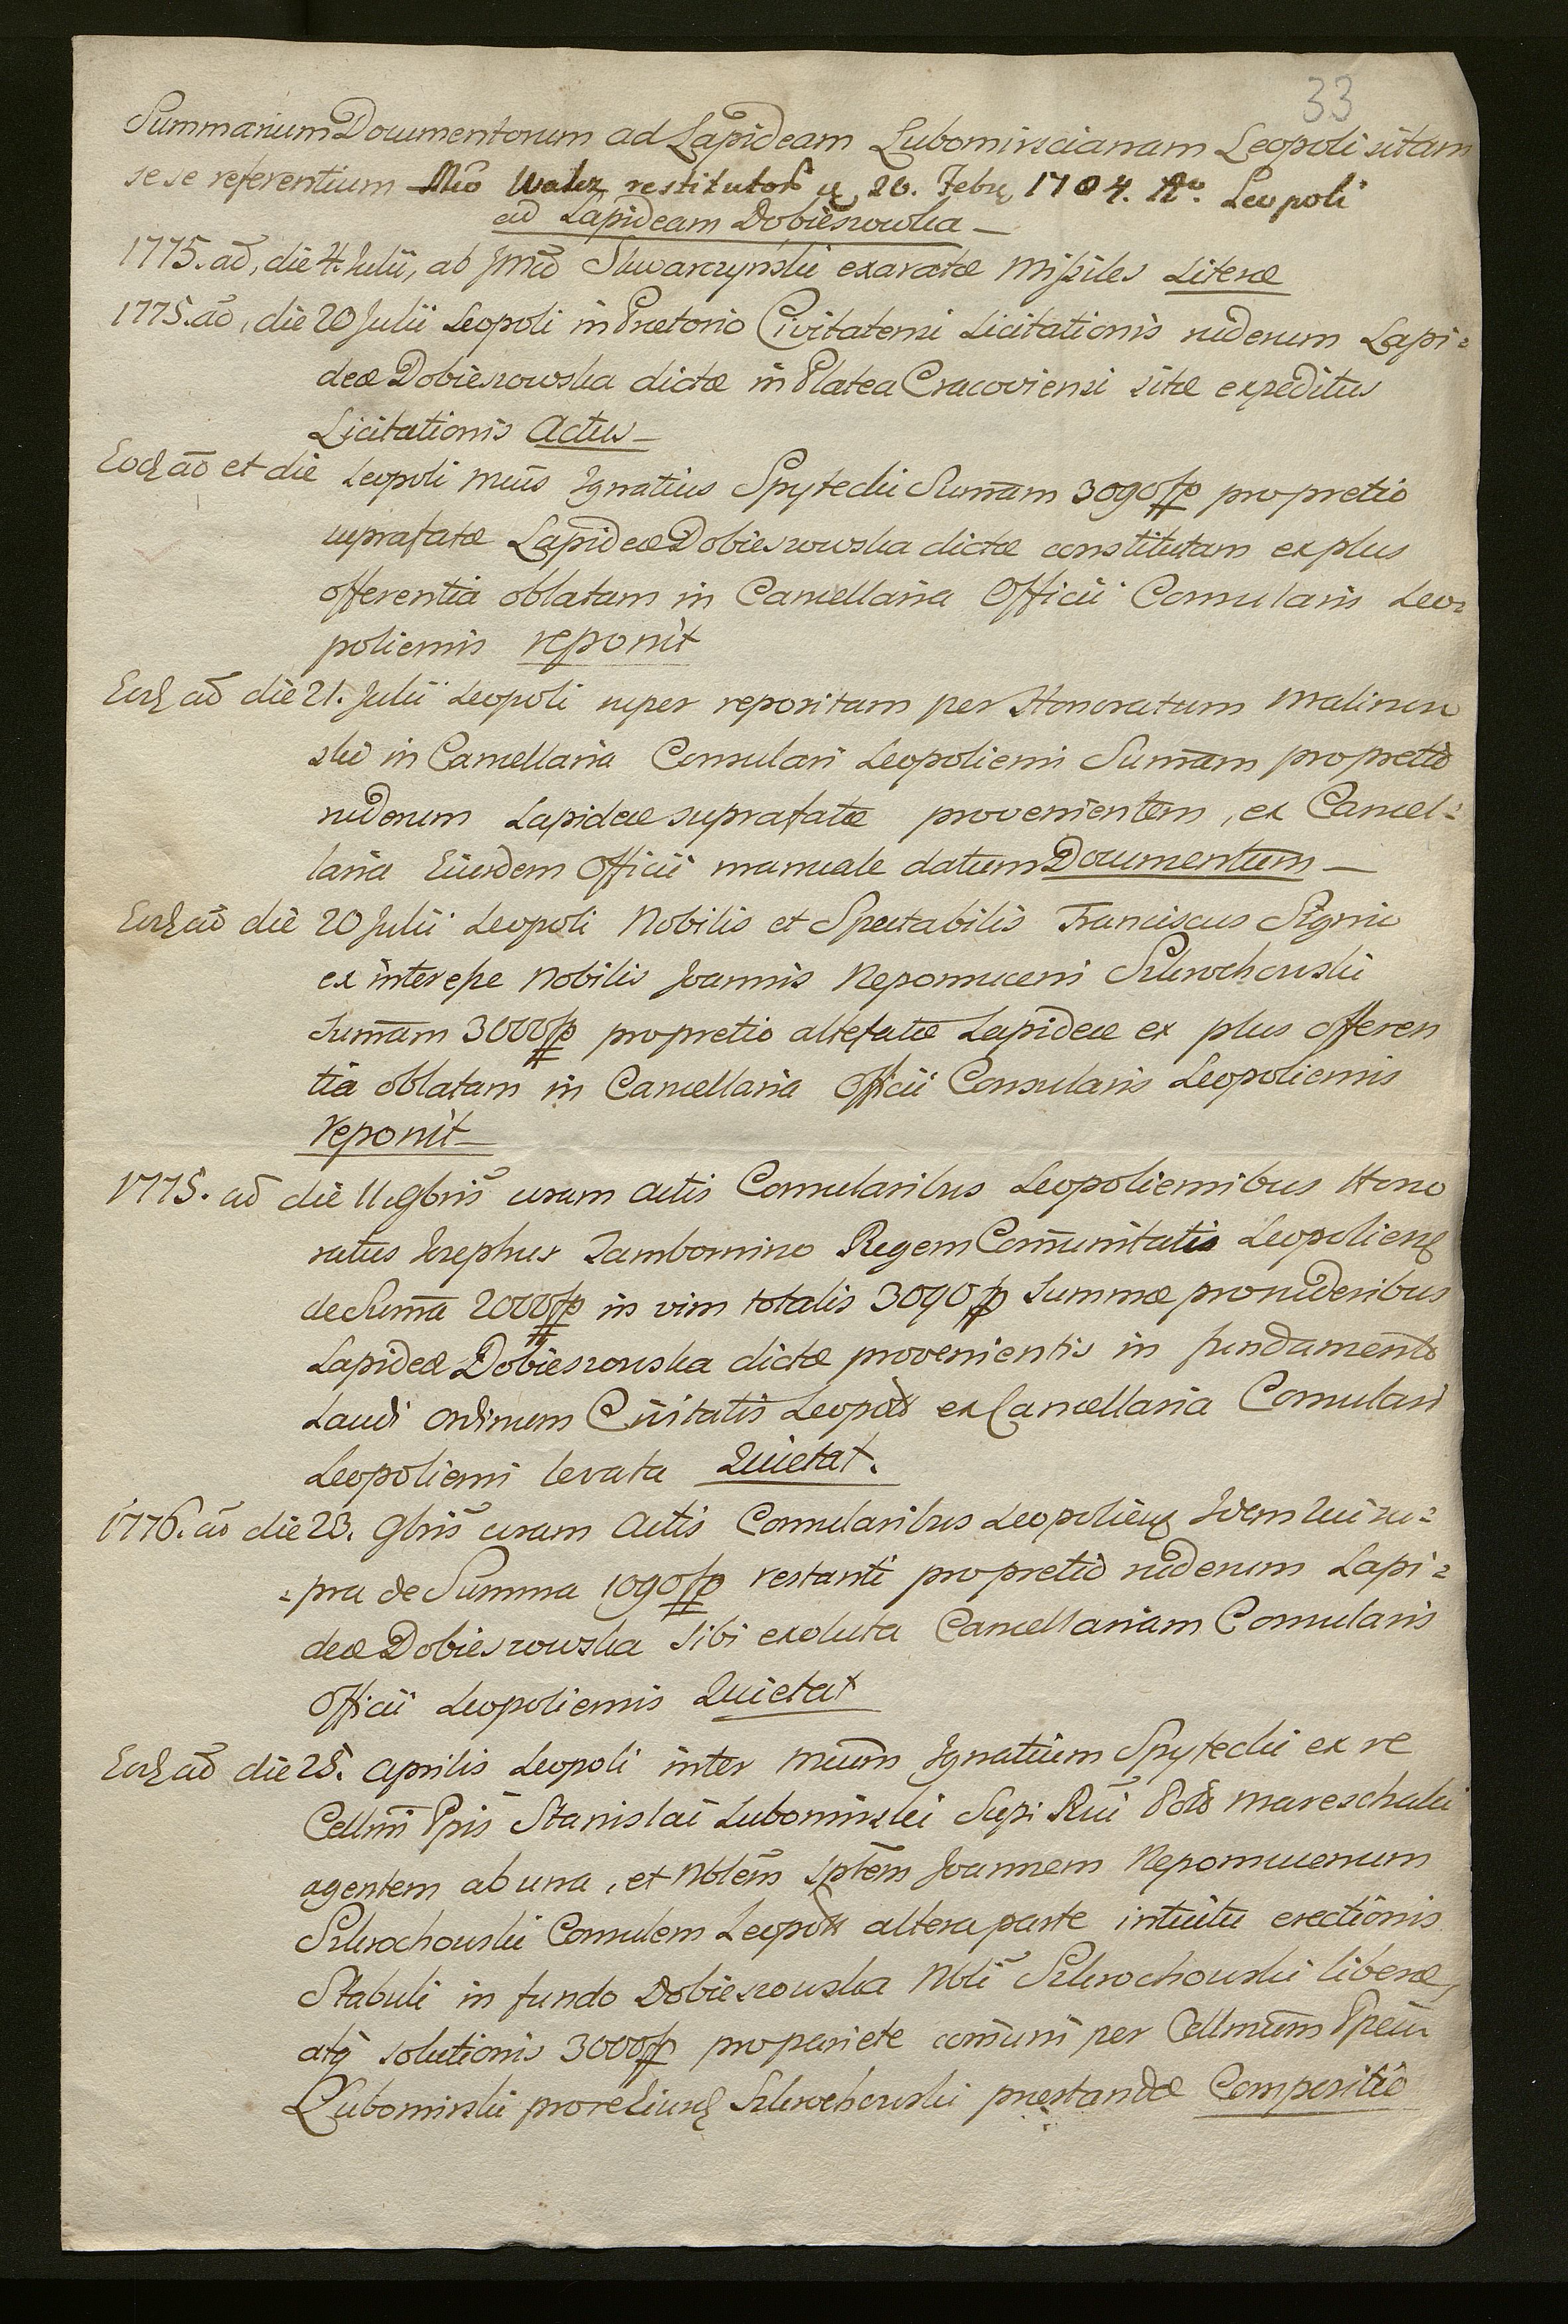 33
Summarium Documentorum ad Lapideam Lubomirscianam Leopoli sitam
sese referentium Mco Walez restitutor 20. Febr 1784. Ao. Leopoli
ad Lapideam Dobieszowska —
1775. aõ, die 4. Julii, ab Jmcõ Skwarczynski exaratæ missiles Literæ
1775. aõ, die 20 Julii Leopoli in Prætorio Civitatensi Licitationis ruderum Lapi=
deæ Dobieszowska dictæ in Platea Cracoviensi sitæ expeditus
Licitationis Actus —
Eod aõ et die Leopoli Mcus Ignatius Spytecki Sumam 3090 fp pro pretio
suprafatæ Lapideæ Dobieszowska dictæ constitutam ex plus
offerentia oblatam in Cancellaria Officii Consularis Leo=
poliensis reponit
Eod aõ die 21. Julii Leopoli super repositam per Honoratum Malinow
ski in Cancellaria Consulari Leopoliensi Sumam pro pretio
ruderum Lapideæ suprafatæ provenientem, ex Cancel=
laria Eiusdem Officii manuale datum Documentum —
Eod aõ die 20 Julii Leopoli Nobilis et Spectabilis Franciscus Signio
ex interesse Nobilis Joannis Nepomuceni Szkrochowski
Sumam 3000 fp pro pretio altefatæ Lapideæ ex plus offeren
tia oblatam in Cancellaria Officii Consularis Leopoliensis
reponit —
1775. aõ die 11. 9bris coram Actis Consularibus Leopoliensibus Hono
ratus Josephus Zambonino Regem Comunitatis Leopoliens
de Suma 2000 fp in vim totalis 3090 fp Summæ pro ruderibus
Lapideæ Dobieszowska dictæ provenientis in fundamento
Laudi Ordinum Civitatis Leopols ex Cancellaria Consulari
Leopoliensi levata Quietat.
1776. aõ die 23. 9bris coram Actis Consularibus Leopoliens Idem qui su=
=pra de Summa 1090 fp restanti pro pretio ruderum Lapi=
deæ Dobieszowska sibi exoluta Cancellariam Consularis
Officii Leopoliensis Quietat
Eod aõ die 25. Aprilis Leopoli inter Mcum Ignatium Spytecki ex re
Cellmi Ppis Stanislai Lubomirski Supi Rni Pols Mareschalci
agentem ab una, et Nblem Sptem Joannem Nepomucenum
Szkrochowski Consulem Leopols altera parte intuitu erectionis
Stabuli in fundo Dobieszowska Nbli Szkrochowski liberæ,
atq solutionis 3000 fp pro pariete comuni per Cellmum Ppem
Lubomirski pro re Eiusd Szkrochowski præstandæ Compositio